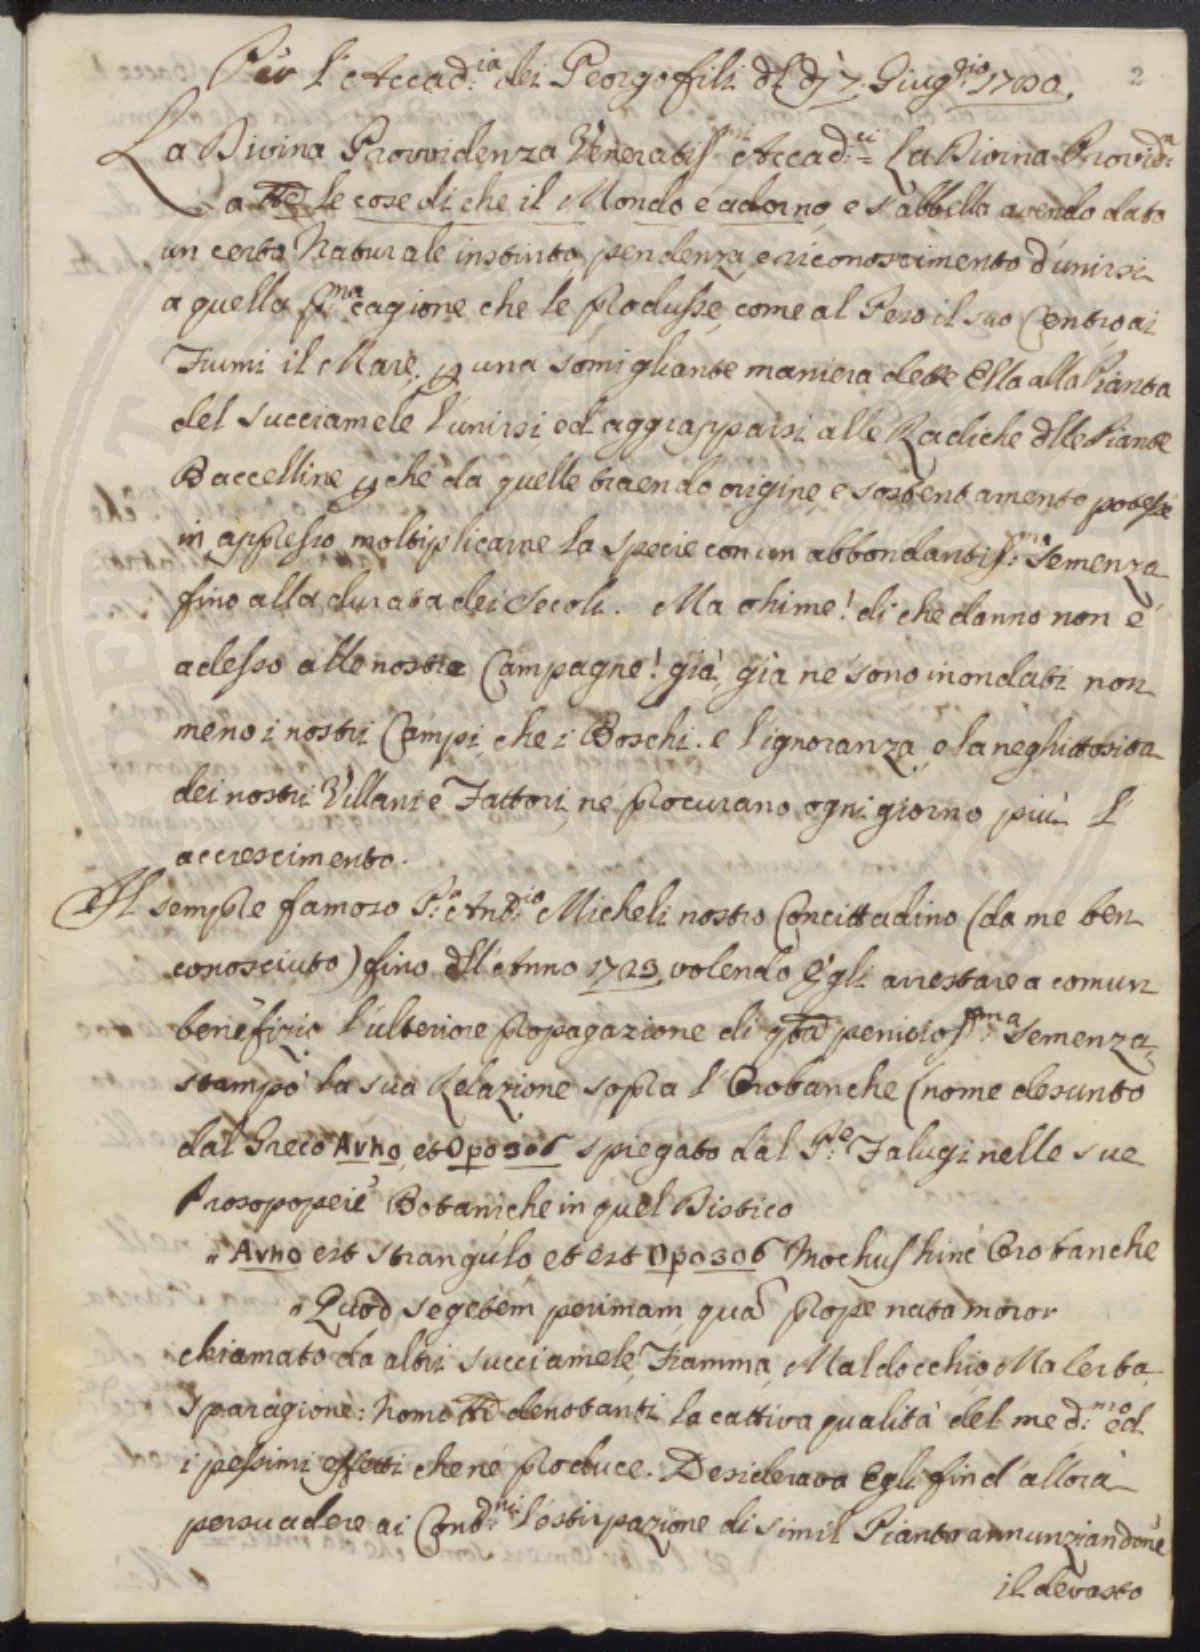 Per l'Accad:ia dei Georgofili dl dì 7. Giug:gio 1780.
2
La Divina Provvidenza Veneratiss:mi Accad:ci = La Divina Provid:a
a tte le cose di che il Mondo è adorno, e s'abbella avendo dato
un certo Naturale instinto, pendenza, e riconoscimento d'unirsi
a quella P:ma cagione che le produsse, come al Peso il suo Centro, ai
Fiumi il Mare, p una somigliante maniera dette Ella alla Pianta
del succiamele l'unirsi, ed aggrapparsi alle Radiche dlle Piante
Baccelline, p che da quelle traendo origine, e sostentamento potesse
in appresso moltiplicarne la specie con un abbondantiss:ma Semenza
fino alla durata dei Secoli. Ma ohime! di che danno non è
adesso alle nostre Campagne! già, già ne sono inondati non
meno i nostri Campi, che i Boschi. e l'ignoranza, e la neghittosita
dei nostri Villani e Fattori, ne procurano ogni giorno più l'
accrescimento.
Il sempre famoso P:r Ant:io Micheli nostro Concittadino (da me ben
conosciuto) fino dll'Anno 1723, volendo Egli arrestare a comun
benefizio l'ulteriore propagazione di qta pernicioss:ma Semenza,
stampò la sua Relazione sopra l'Orobanche (nome desunto
dal Greco Avho, et Opo306 spiegato dal P:e Falugi nelle sue
Prosopopeie Botaniche in quel Distico
" Avho est strangulo et est Opo306 Mochus hinc Orobanche
" Quod segetem perimam qua prope nata moror
chiamato da altri succiamele, Fiamma, Maldocchio, Malerba,
Sparagione: Nomi tti denotanti la cattiva qualità del med:mo ed
i pessimi effetti che ne produce. Desiderava Egli fin d'allora
persuadere ai Contd:ni l'estirpazione di simil Pianta annunziandone
il devasto